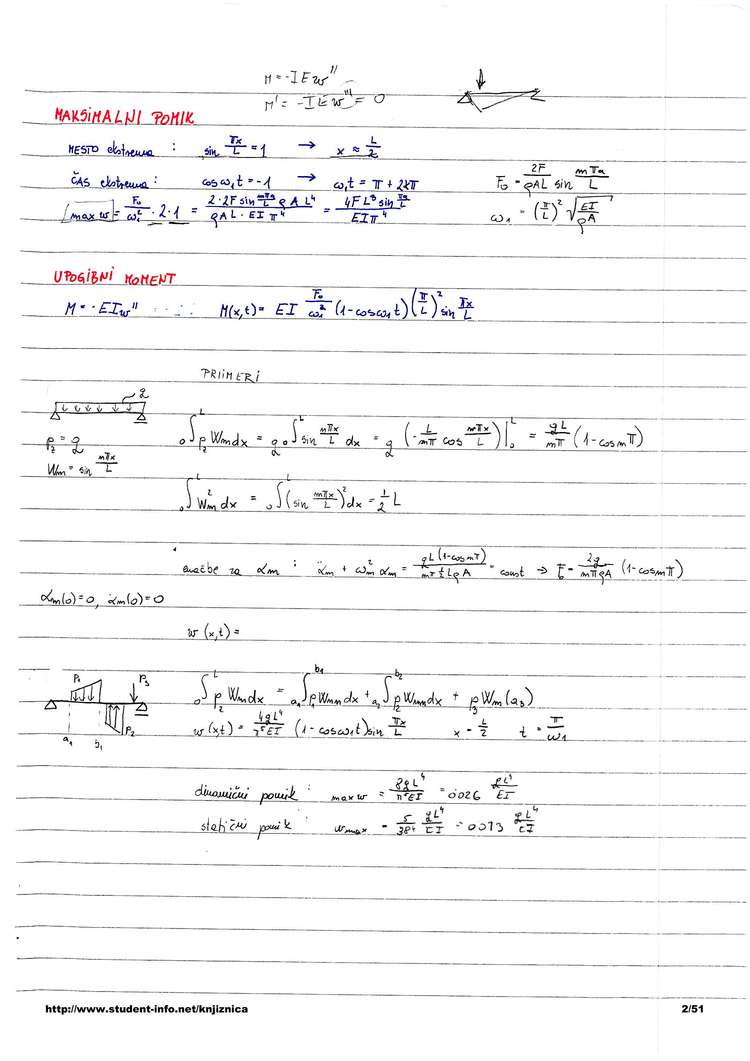 M = -IEw''
M' = -IEw''' = 0
MAKSIMALNI POMIK
MESTO ekstrema : sin πx/L = 1 → x ≈ L/2
ČAS ekstrema : cos ω₁t = -1 → ω₁t = π + 2kπ
F₀ = 2F/ρAL sin mπa/L
max w = F₀/ω₁² · 2 · 1 = 2·2F sin mπa/L ρAL⁴/ρAL·EIπ⁴ = 4FL³ sin πa/L/EIπ⁴
ω₁ = (π/L)² √EI/ρA
UPOGIBNI MOMENT
M = -EIw'' M(x,t) = EI F₀/ω₁² (1-cosω₁t)(π/L)² sin πx/L
PRIIMERI
q
p₂ = q
Wm = sin mπx/L
₀∫ᴸ p₂ Wm dx = q ₀∫ᴸ sin mπx/L dx = q (-L/mπ cos mπx/L)|₀ᴸ = qL/mπ (1-cos mπ)
₀∫ᴸ Wm² dx = ₀∫ᴸ (sin mπx/L)² dx = 1/2 L
enačbe za αm : α̈m + ωm² αm = qL(1-cosmπ)/mπ ½LρA = const → F₀ = 2q/mπρA (1-cosmπ)
αm(0)=0, α̇m(0)=0
w(x,t) =
P₁ P₃
P₂
a₁ b₁
₀∫ᴸ p₂ Wm dx = a₁∫b₁ p₁ Wm dx + a₂∫b₂ p₂ Wm dx + p₃ Wm(a₃)
w(x,t) = 4qL⁴/π⁵EI (1-cosω₁t) sin πx/L x = L/2 t = π/ω₁
dinamični pomik : max w = 8qL⁴/π⁵EI = 0026 qL⁴/EI
statični pomik : wmax = 5/384 qL⁴/EI = 0013 qL⁴/EI
http://www.student-info.net/knjiznica 2/51